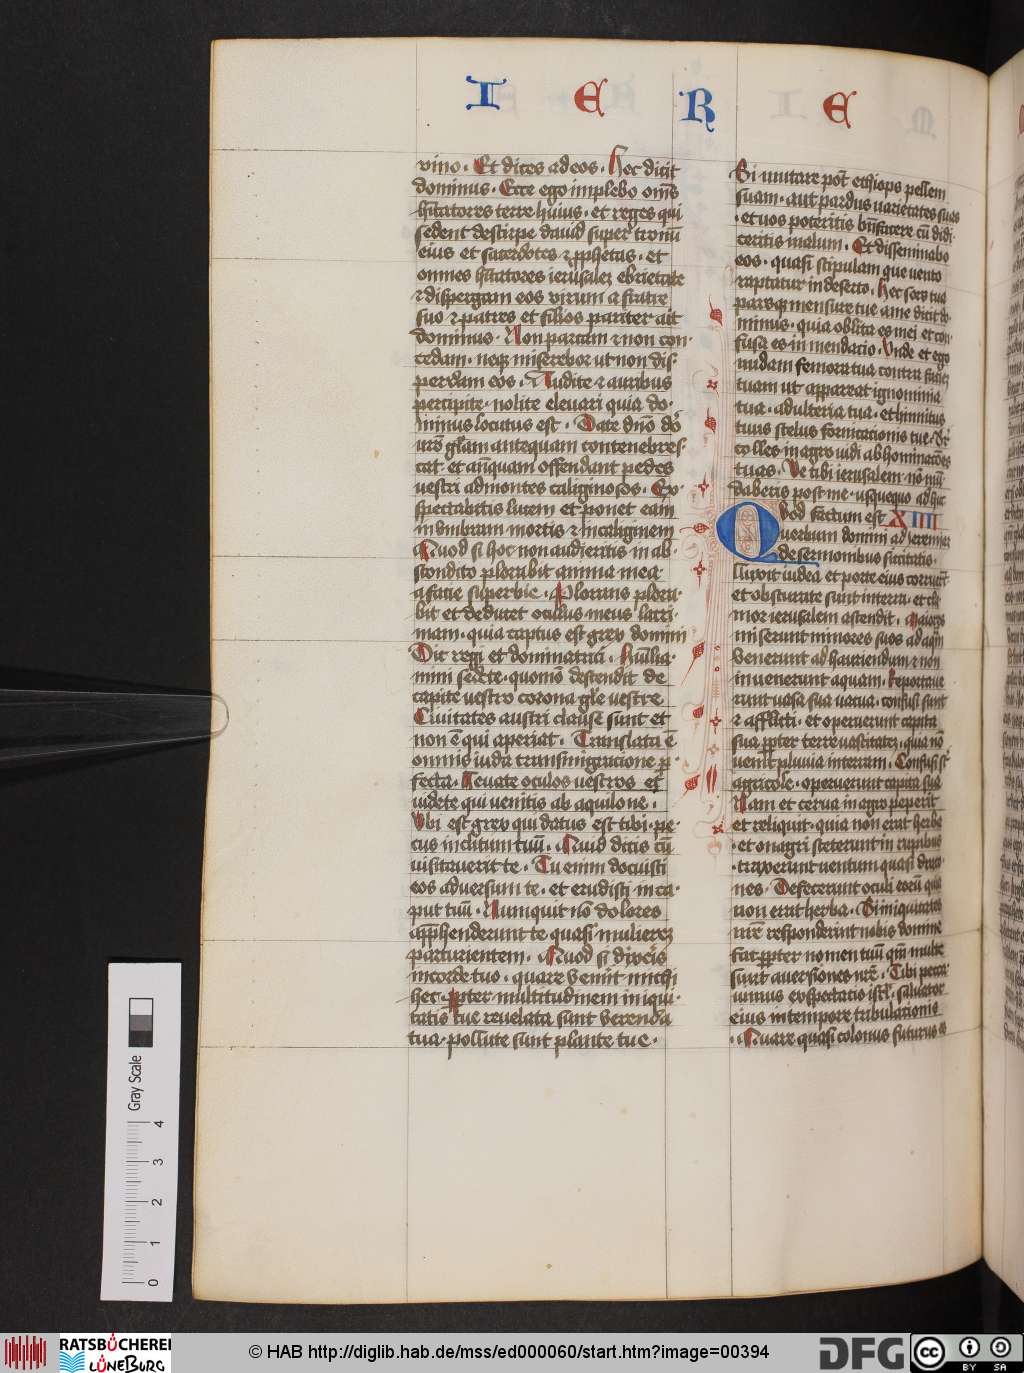 I E R E
vino. Et dices ad eos. Hec dicit
dominus. Ecce ego implebo om̄s
hītatores terre huius. et reges qui
sedent de stirpe david super tronū
eius et sacerdotes ⁊ ꝓphetas. et
omnes hītatores ierusalez ebrietate
⁊ dispergam eos virum a fratre
suo ⁊ patres et filios pariter ait
dominus. Non parcam ⁊ non con-
cedam. neqꝫ miserebor ut non dis-
perdam eos. Audite ⁊ auribus
percipite. nolite elevari quia do-
minus locutus est. Date dn̄o do
vr̄o gl̄am antequam contenebres-
cat. et an̄quam offendant pedes
vestri ad montes caliginosos. Ex-
spectabitis lucem et ponet eam
in umbram mortis ⁊ in caliginem
Quod si hoc non audieritis in ab-
scondito plorabit anima mea
a facie superbie. Plorans plora-
bit et deducet oculus meus lacri-
mam. quia captus est grex domini
Dic regi et dominatrici. Humilia-
mini sedete. quoniō descendit de
capite vestro corona gl̄e vestre
Civitates austri clause sunt et
non ē qui aperiat. Translata ē
omnis iuda transmigracione ꝑ-
fecta. Levate oculos vestros et
videte qui venitis ab aquilone.
Ubi est grex qui datus est tibi. pe-
cus inclitum tuū. Quid dicis cū
visitaverit te. Tu enim docuisti
eos adversum te. et erudisti in ca-
put tuū. Nunquit nō dolores
app̄henderunt te quasi mulierez
parturientem. Quod si dixeris
in corde tuo. quare venit michi
hec. ꝓpter multitudinem iniqui-
tatis tue revelata sunt verenda
tua. pollute sunt plante tue.
Si mutare pōt ethiops pellem
suam. aut pardus varietates suas
. et vos poteritis bn̄facere cū didi-
ceritis malum. Et disseminabo
eos. quasi stipulam que vento
raptatur in deserto. Hec sors tua
parsqꝫ mensure tue a me dicit do-
minus. quia oblita es mei et con-
fusa es in mendacio. Unde et ego
nudam femora tua contra faciē
tuam ut appareat ignominia
tua. adulteria tua. et hinnitus
tuus scelus fornicationis tue.
colles in agro vidi abhominacōes
tuas. Ve tibi ierusalem. nō mū-
daberis post me. usquequo adhuc
Quod factum est XIIII
verbum domini ad ieremiā
de sermonibus siccitatis.
Luxit iudea et porte eius corruerūt
et obscurate sunt in terra. et cla-
mor ierusalem ascendit. Maiores
miserunt minores suos ad aquā
Venerunt ad hauriendum ⁊ non
invenerunt aquam. Reportave-
runt vasa sua vacua. confusi sunt
⁊ afflicti. et operuerunt capita
sua ꝓpter terre vastitatez. quia nō
venit pluvia in terram. Confusi sūt
agricole. operuerunt capita sua
Nam et cerva in agro peperit
et reliquit. quia non erat herba
. et onagri steterunt in rupibus
. traxerunt ventum quasi draco-
nes. Defecerunt oculi eorū quia
non erat herba. Si iniquitates
nr̄e responderint nobis domine
fac ꝓpter nomen tuū qm̄ multe
sunt aversiones nr̄e. Tibi pecca-
vimus exspectatio isrl̄. salvator
eius in tempore tribulationis
. Quare quasi colonus futurus es
Gray Scale
4
3
2
1
0
RATSBÜCHEREI
LÜNEBURG
© HAB http://diglib.hab.de/mss/ed000060/start.htm?image=00394
DFG
cc BY SA